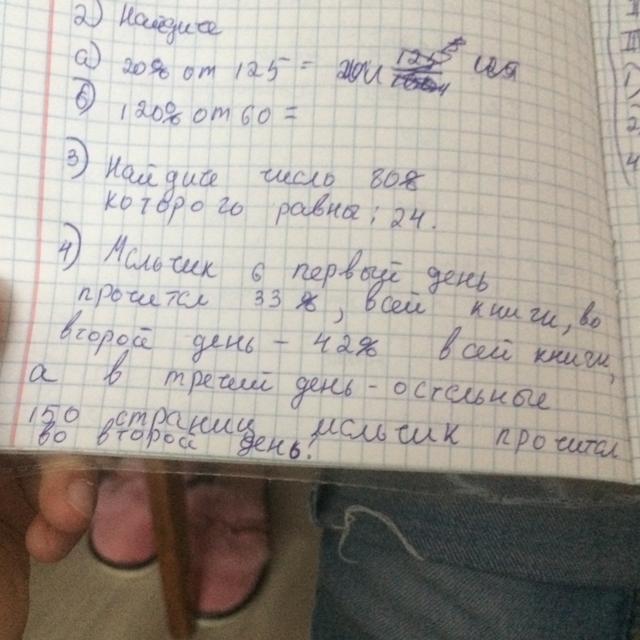 2) Найдите
а) 20% от 125 =
б) 120% от 60 =
3) Найдите число 80%
которого равна: 24.
4) Мальчик в первый день
прочитал 33%, всей книги, во
второй день - 42% всей книги,
а в третий день - остальные
150 страниц мальчик прочитал
во второй день.